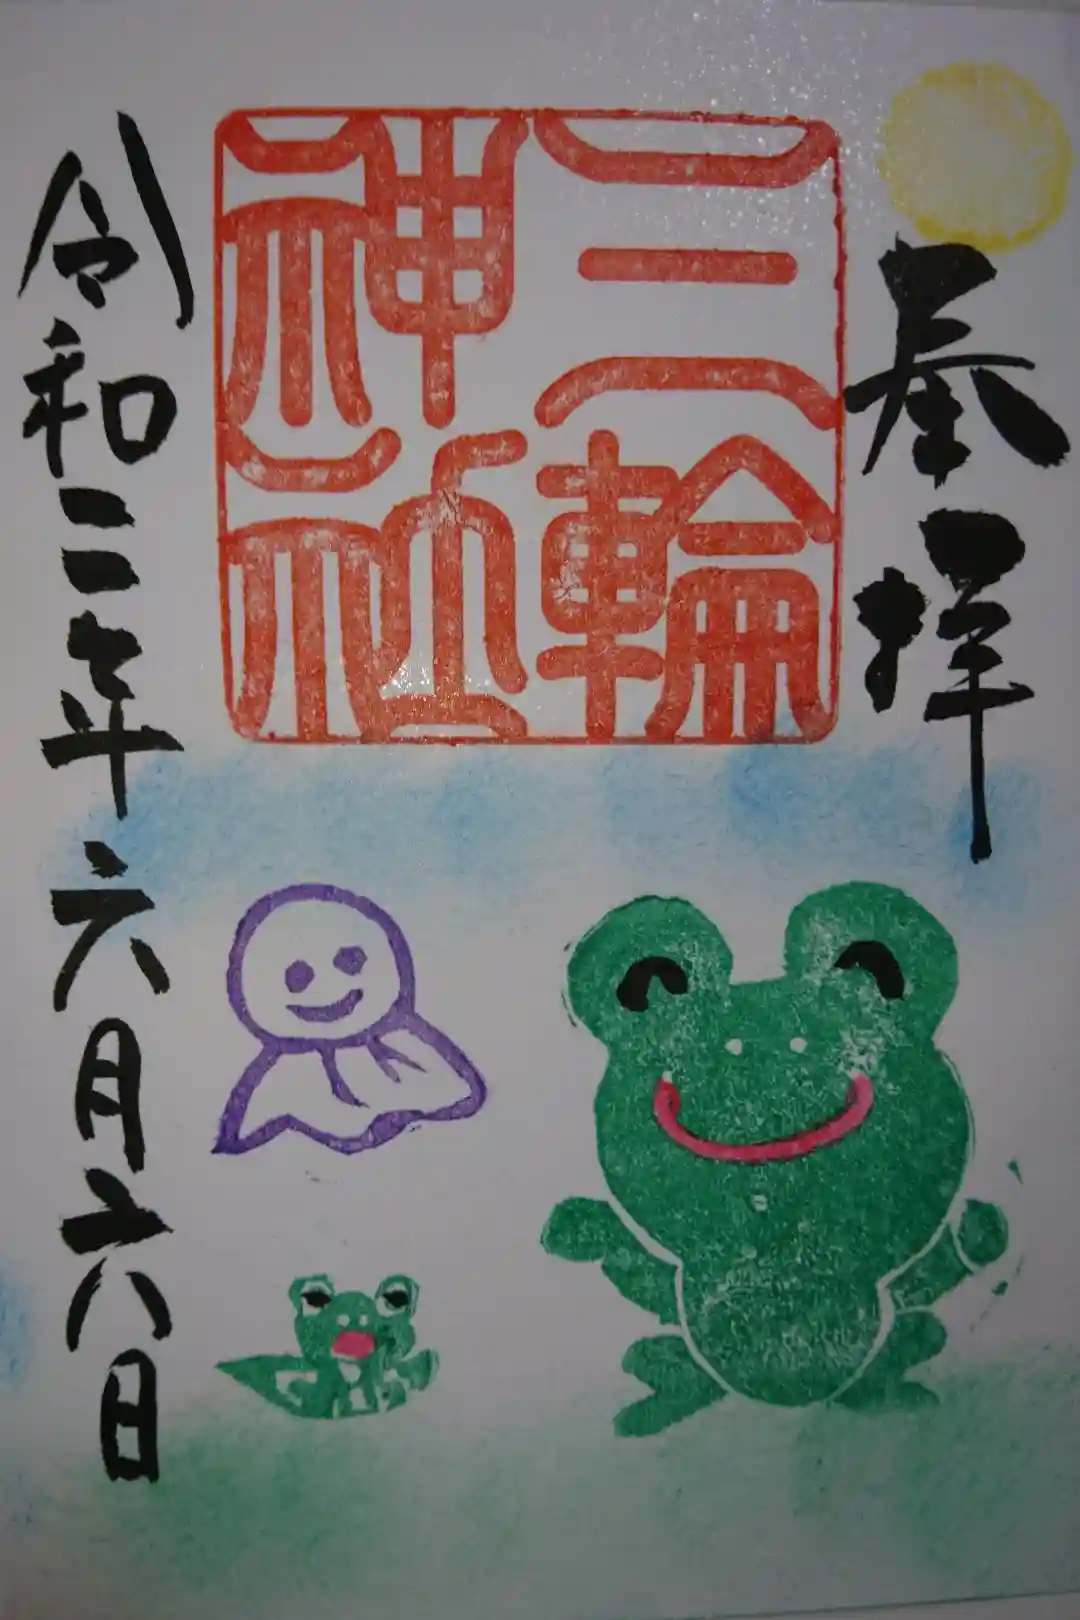 奉拝
三輪
神社
令和二年六月六日